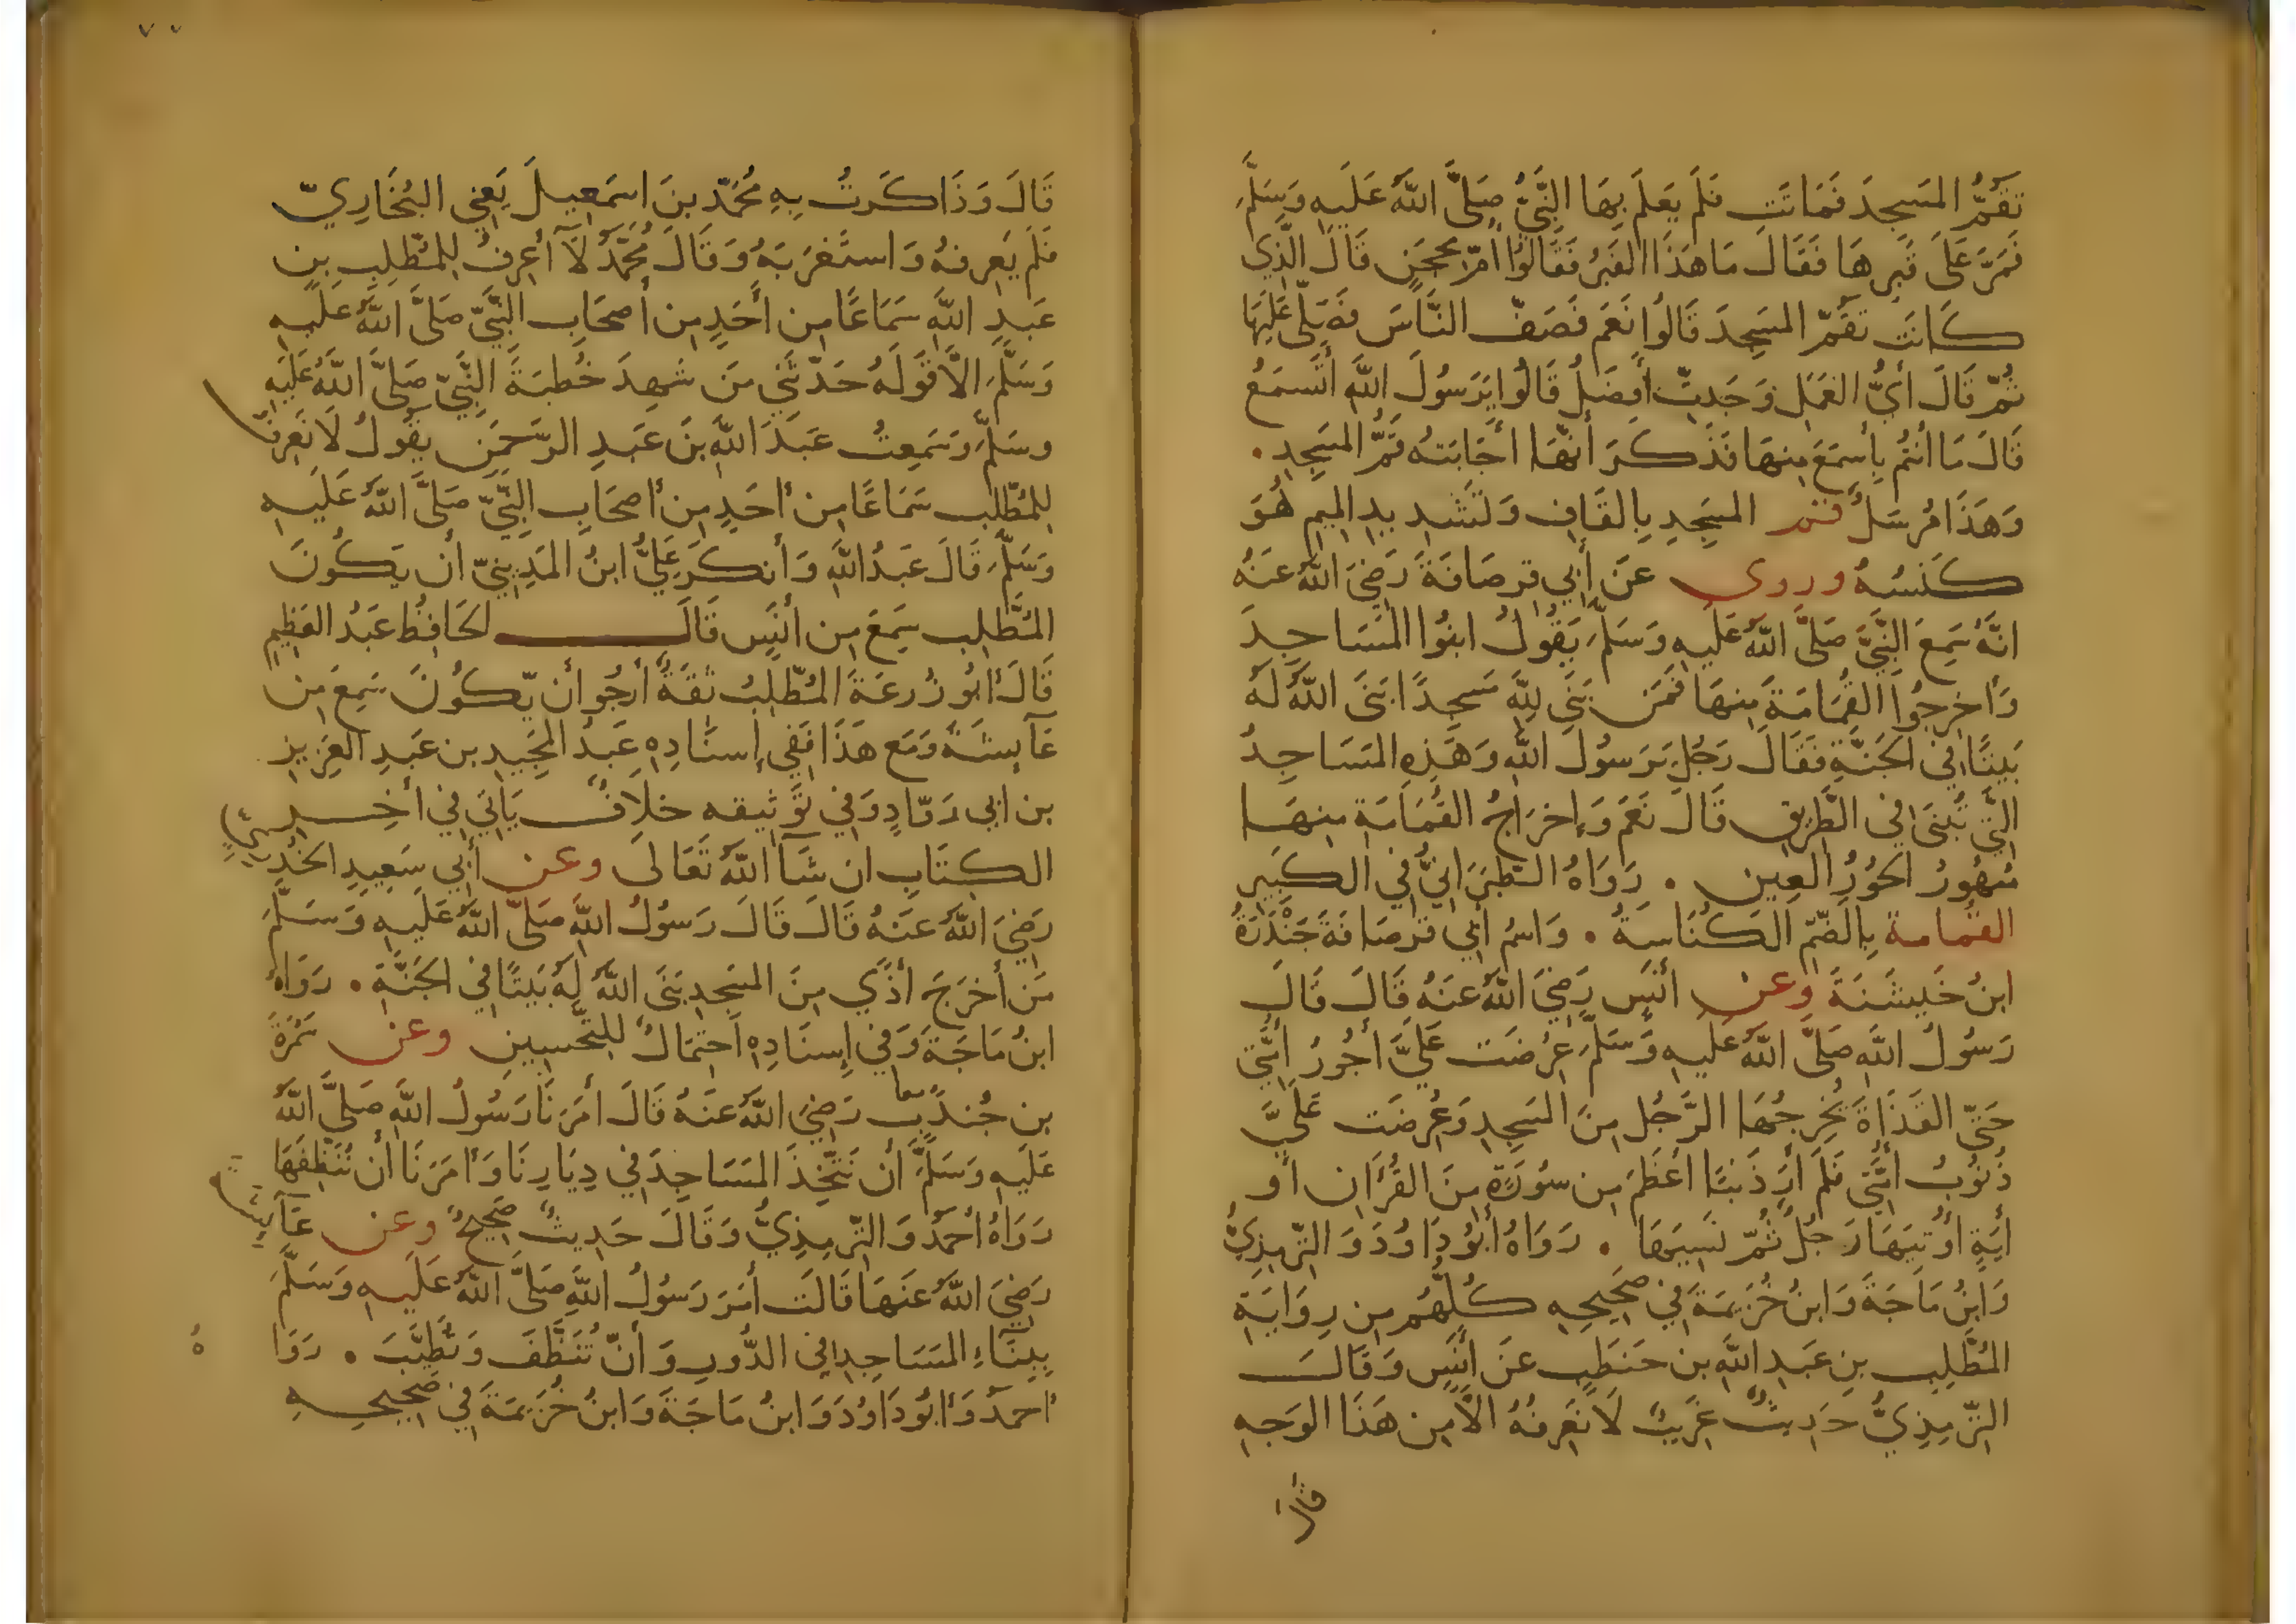 تَقُمُّ المَسجِدَ فَمَاتَت فَلَم يَعلَم بِهَا النَّبِيُّ صَلَّى اللَّهُ عَلَيهِ وَسَلَّمَ
فَمَرَّ عَلَى قَبرِهَا فَقَالَ مَا هَذَا القَبرُ فَقَالُوا أُمّ مِحجَنٍ قَالَ الَّذِي
كَانَت تَقُمّ المَسجِدَ قَالُوا نَعَم فَصَفّ النَّاسَ فَصَلَّى عَلَيهَا
ثُمّ قَالَ أَيُّ العَمَلِ وَجَدتِّ أَفضَلُ قَالُوا يَرَسُولَ اللَّهِ أَتَسمَعُ
قَالَ مَا أَنتُم بِأَسمَعَ مِنهَا فَذَكَرَ أَنَّهَا أَجَابَتهُ قَمُّ المَسجِدِ .
وَهَذَا مُرسَلٌ قَمّ المَسجِدِ بِالقَافِ وَتَشدِيدِ المِيمِ هُوَ
كَنسُهُ وروى عَن أَبِي قِرصَافَةَ رَضِيَ اللَّهُ عَنهُ
انَّهُ سَمِعَ النَّبِيَّ صَلَّى اللَّهُ عَلَيهِ وَسَلَّمَ يَقُولُ ابنُوا المَسَاجِدَ
وَأَخرِجُوا القُمَامَةَ مِنهَا فَمَن بَنَى لِلَّهِ مَسجِدًا بَنَى اللَّهُ لَهُ
بَيتًا فِي الجَنَّةِ فَقَالَ رَجُلٌ يَرَسُولَ اللَّهِ وَهَذِهِ المَسَاجِدُ
الَّتِي تُبنَى فِي الطَّرِيقِ قَالَ نَعَم وَإِخرَاجُ القُمَامَةِ مِنهَا
مُهُورُ الحُورِ العِينِ . رَوَاهُ الطَّبَرَانِيُّ فِي الكَبِيرِ
القمامة بِالضَّمّ الكُنَاسَةُ . وَاسمُ أَبِي قِرصَافَةَ جَندَرَةُ
ابنُ خَيشَنَةَ وعن أَنَسٍ رَضِيَ اللَّهُ عَنهُ قَالَ قَالَ
رَسُولُ اللَّهِ صَلَّى اللَّهُ عَلَيهِ وَسَلَّمَ عُرِضَت عَلَيَّ أُجُورُ أُمَّتِي
حَتَّى القَذَاةَ يُخرِجُهَا الرَّجُلُ مِنَ المَسجِدِ وَعُرِضَت عَلَيَّ
ذُنُوبُ أُمَّتِي فَلَم أَرَ ذَنبًا أَعظَمَ مِن سُورَةٍ مِنَ القُرآنِ أَو
أيَةٍ أُوتِيَهَا رَجُلٌ ثُمّ نَسِيَهَا . رَوَاهُ أَبُو دَاوُدَ وَ التِّرمِذِيُّ
وَابنُ مَاجَةَ وَابنُ خُزَيمَةَ فِي صَحِيحِهِ كُلُّهُم مِن رِوَايَةِ
المُطَّلِبِ بنِ عَبدِ اللَّهِ بن حَنطَبٍ عَن أَنَسٍ وَقَالَ
التِّرمِذِيُّ حَدِيثٌ غَرِيبٌ لَا نَعرِفُهُ الَّا مِن هَذَا الوَجهِ
قال
قَالَ وَذَاكَرتُ بِهِ مُحَمّدَ بنَ اسمَعِيلَ يَعنِي البُخَارِيّ
فَلَم يَعرِفهُ وَاستَغرَبَهُ وَقَالَ مُحَمَّدٌ لَا أَعرِفُ لِلمُطَّلِبِ بنِ
عَبدِ اللَّهِ سَمَاعًا مِن أَحَدٍ مِن أَصحَابِ النَّبِيِّ صَلَّى اللَّهُ عَلَيهِ
وَسَلَّمَ الَّا قَولَهُ حَدَّثَنِي مَن شَهِدَ خُطبَةَ النَّبِيِّ صَلَّى اللَّهُ عَلَيهِ
وسَلَّمَ وَسَمِعتُ عَبدَ اللَّهِ بنَ عَبدِ الرَّحمَنِ يَقُولُ لَا نَعرِفُ
لِلمُطَّلِبِ سَمَاعًا مِن أَحَدٍ مِن أَصحَابِ النَّبِيِّ صَلَّى اللَّهُ عَلَيهِ
وَسَلَّمَ قَالَ عَبدُ اللَّهِ وَأَنكَرَ عَلِيُّ ابنُ المَدِينِيّ أَن يَكُونَ
المُطَّلِبِ سَمِعَ مِن أَنَسٍ قَالَ لحَافِظُ عَبدُ العَظِيمِ
قَالَ أَبُو زُرعَةَ المُطَّلِبُ ثِقَةٌ أَرجُو أَن يّكُونَ سَمِعَ مِن
عَآيِشَةَ وَمَع هَذَا فَفِي إِسنَادِهِ عَبدُ المَجِيدِ بن عَبدِ العَزِيزِ
بن ابي رَوّادٍ وَفِي تَوثِيقه خلَافٌ يَاتِي فِي أَخِـــرِ
الكِتَابِ ان شَآ اللَّهُ تَعَالَى وعن أَبِي سَعِيدٍ الخُدرِيِّ
رَضِيَ اللَّهُ عَنهُ قَالَ قَالَ رَسُولُ اللَّهِ صَلَّى اللَّهُ عَلَيهِ وَسَلَّمَ
مَن أَخرَجَ أَذًى مِنَ المَسجِدِ بَنَى اللَّهُ لَهُ بَيتًا فِي الجَنَّةِ . رَوَاهُ
ابنُ مَاجَةَ وَفِي إِسنَادِهِ احتِمَالٌ لِلتَّحسِينِ وعن سَمُرَةَ
بن جُندُبٍ رَضِيَ اللَّهُ عَنهُ قَالَ أَمَرَنَا رَسُولُ اللَّهِ صَلَّى اللَّهُ
عَلَيهِ وَسَلَّمَ أَن نَتَّخِذَ المَسَاجِدَ فِي دِيَارِنَا وَأَمَرَنَا أَن نُنَظِّفَهَا
رَوَاهُ أَحمَدُ وَ التِّرمِذِيُّ وَقَالَ حَدِيثٌ صَحِيحٌ وعن عَآيِشَةَ
رَضِيَ اللَّهُ عَنهَا قَالَت أَمَرَ رَسُولُ اللَّهِ صَلَّى اللَّهُ عَلَيهِ وَسَلَّمَ
بِبِنَاءِ المَسَاجِدِ فِي الدُّورِ وَ أَن تُنَظَّفَ وَتُطَيَّبَ . رَوَاهُ
أَحمَدُ وَأَبُو دَاوُدَ وَ ابنُ مَاجَةَ وَابنُ خُزَيمَةَ فِي صَحِيحِهِ